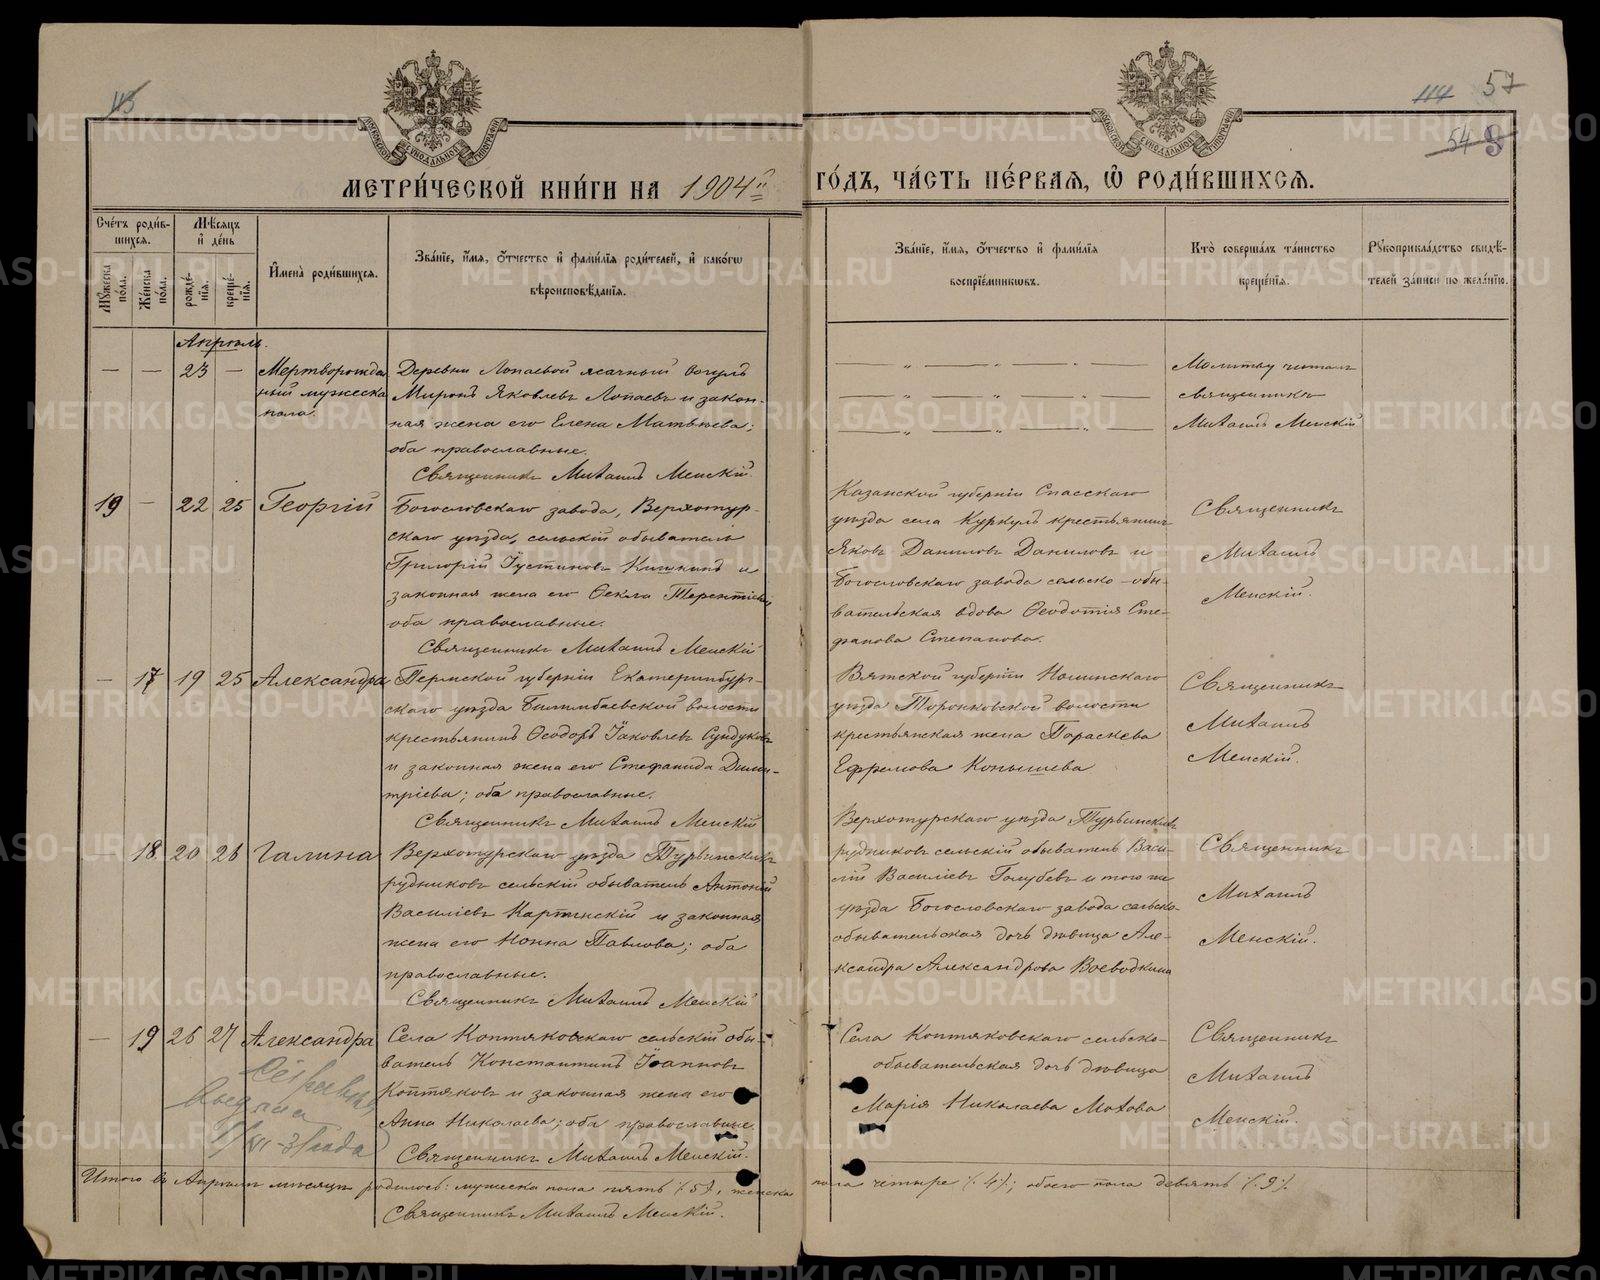 113
114 57
54 8
МЕТРИ́ЧЕСКОЙ КНИ́ГИ НА 1904й ГО́ДЪ, ЧА́СТЬ ПЕ́РВАЯ, Ѡ҆ РОДИ́ВШИХСЯ.
Сче́тъ роди́в-
шихся.
Мѣ́сяцъ
и҆ де́нь
Мꙋ́жеска по́ла.
Же́нска по́ла.
рожде́-
нїя.
креще́-
нїя.
И҆мена̀ роди́вшихся.
Зва́нїе, и҆́мя, ѻ҆́тчество и҆ фами́лїя роди́телей, и҆ како́гѡ
вѣроисповѣ́данїя.
Зва́нїе, и҆́мя, ѻ҆́тчество и҆ фами́лїя
воспрїе́мникѡвъ.
Кто̀ соверша́лъ та́инство
креще́нїя.
Рꙋкоприкла́дство свидѣ́-
телей за́писи по жела́нїю.
Апрѣль.
— — 23 — Мертворожден
ный мужеска
пола.
Деревни Лопаевой ясачный вогулъ
Миронъ Яковлевъ Лопаевъ и закон-
ная жена его Елена Матѳіева;
оба православные.
Священникъ Михаилъ Менскій.
Молитву читалъ
священникъ
Михаилъ Менскій
19 — 22 25 Георгій
Богословскаго завода, Верхотур-
скаго уѣзда, сельскій обыватель
Григорій Іустиновъ Кишкинъ и
законная жена его Ѳекла Терентіева
оба православные.
Священникъ Михаилъ Менскій
Казанской губерніи Спасскаго
уѣзда села Куркуль крестьянинъ
Яковъ Даниловъ Даниловъ и
Богословскаго завода сельско-обы-
вательская вдова Ѳеодотія Сте-
фанова Степанова.
Священникъ
Михаилъ
Менскій.
— 17 19 25 Александра
Пермской губерніи Екатеринбург-
скаго уѣзда Билимбаевской волости
крестьянинъ Ѳеодоръ Іаковлевъ Сундуковъ
и законная жена его Стефанида Дими-
тріева; оба православные.
Священникъ Михаилъ Менскій
Вятской губерніи Нолинскаго
уѣзда Торопковской волости
крестьянская жена Параскева
Ефремова Конышева
Священникъ
Михаилъ
Менскій.
— 18 20 26 Галина
Верхотурскаго уѣзда Турьинскихъ
рудниковъ сельскій обыватель Антоній
Василіевъ Картинскій и законная
жена его Нонна Павлова; оба
православные.
Священникъ Михаилъ Менскій
Верхотурскаго уѣзда Турьинскихъ
рудниковъ сельскій обыватель Васи-
лій Василіевъ Голубевъ и того же
уѣзда Богословскаго завода сельско-
обывательская дочь дѣвица Але-
ксандра Александрова Воеводкина
Священникъ
Михаилъ
Менскій.
— 19 26 27 Александра
Села Коптяковскаго сельскій обы-
ватель Константинъ Іоанновъ
Коптяковъ и законная жена его
Анна Николаева; оба православные.
Священникъ Михаилъ Менскій.
Села Коптяковскаго сельско-
обывательская дочь дѣвица
Марія Николаева Махова
Священникъ
Михаилъ
Менскій.
Итого въ Апрѣлѣ мѣсяцѣ родилось: мужеска пола пять /.5/., женска пола четыре /.4/.; обоего пола девять /.9/.
Священникъ Михаилъ Менскій.
METRIKI.GASO-URAL.RU